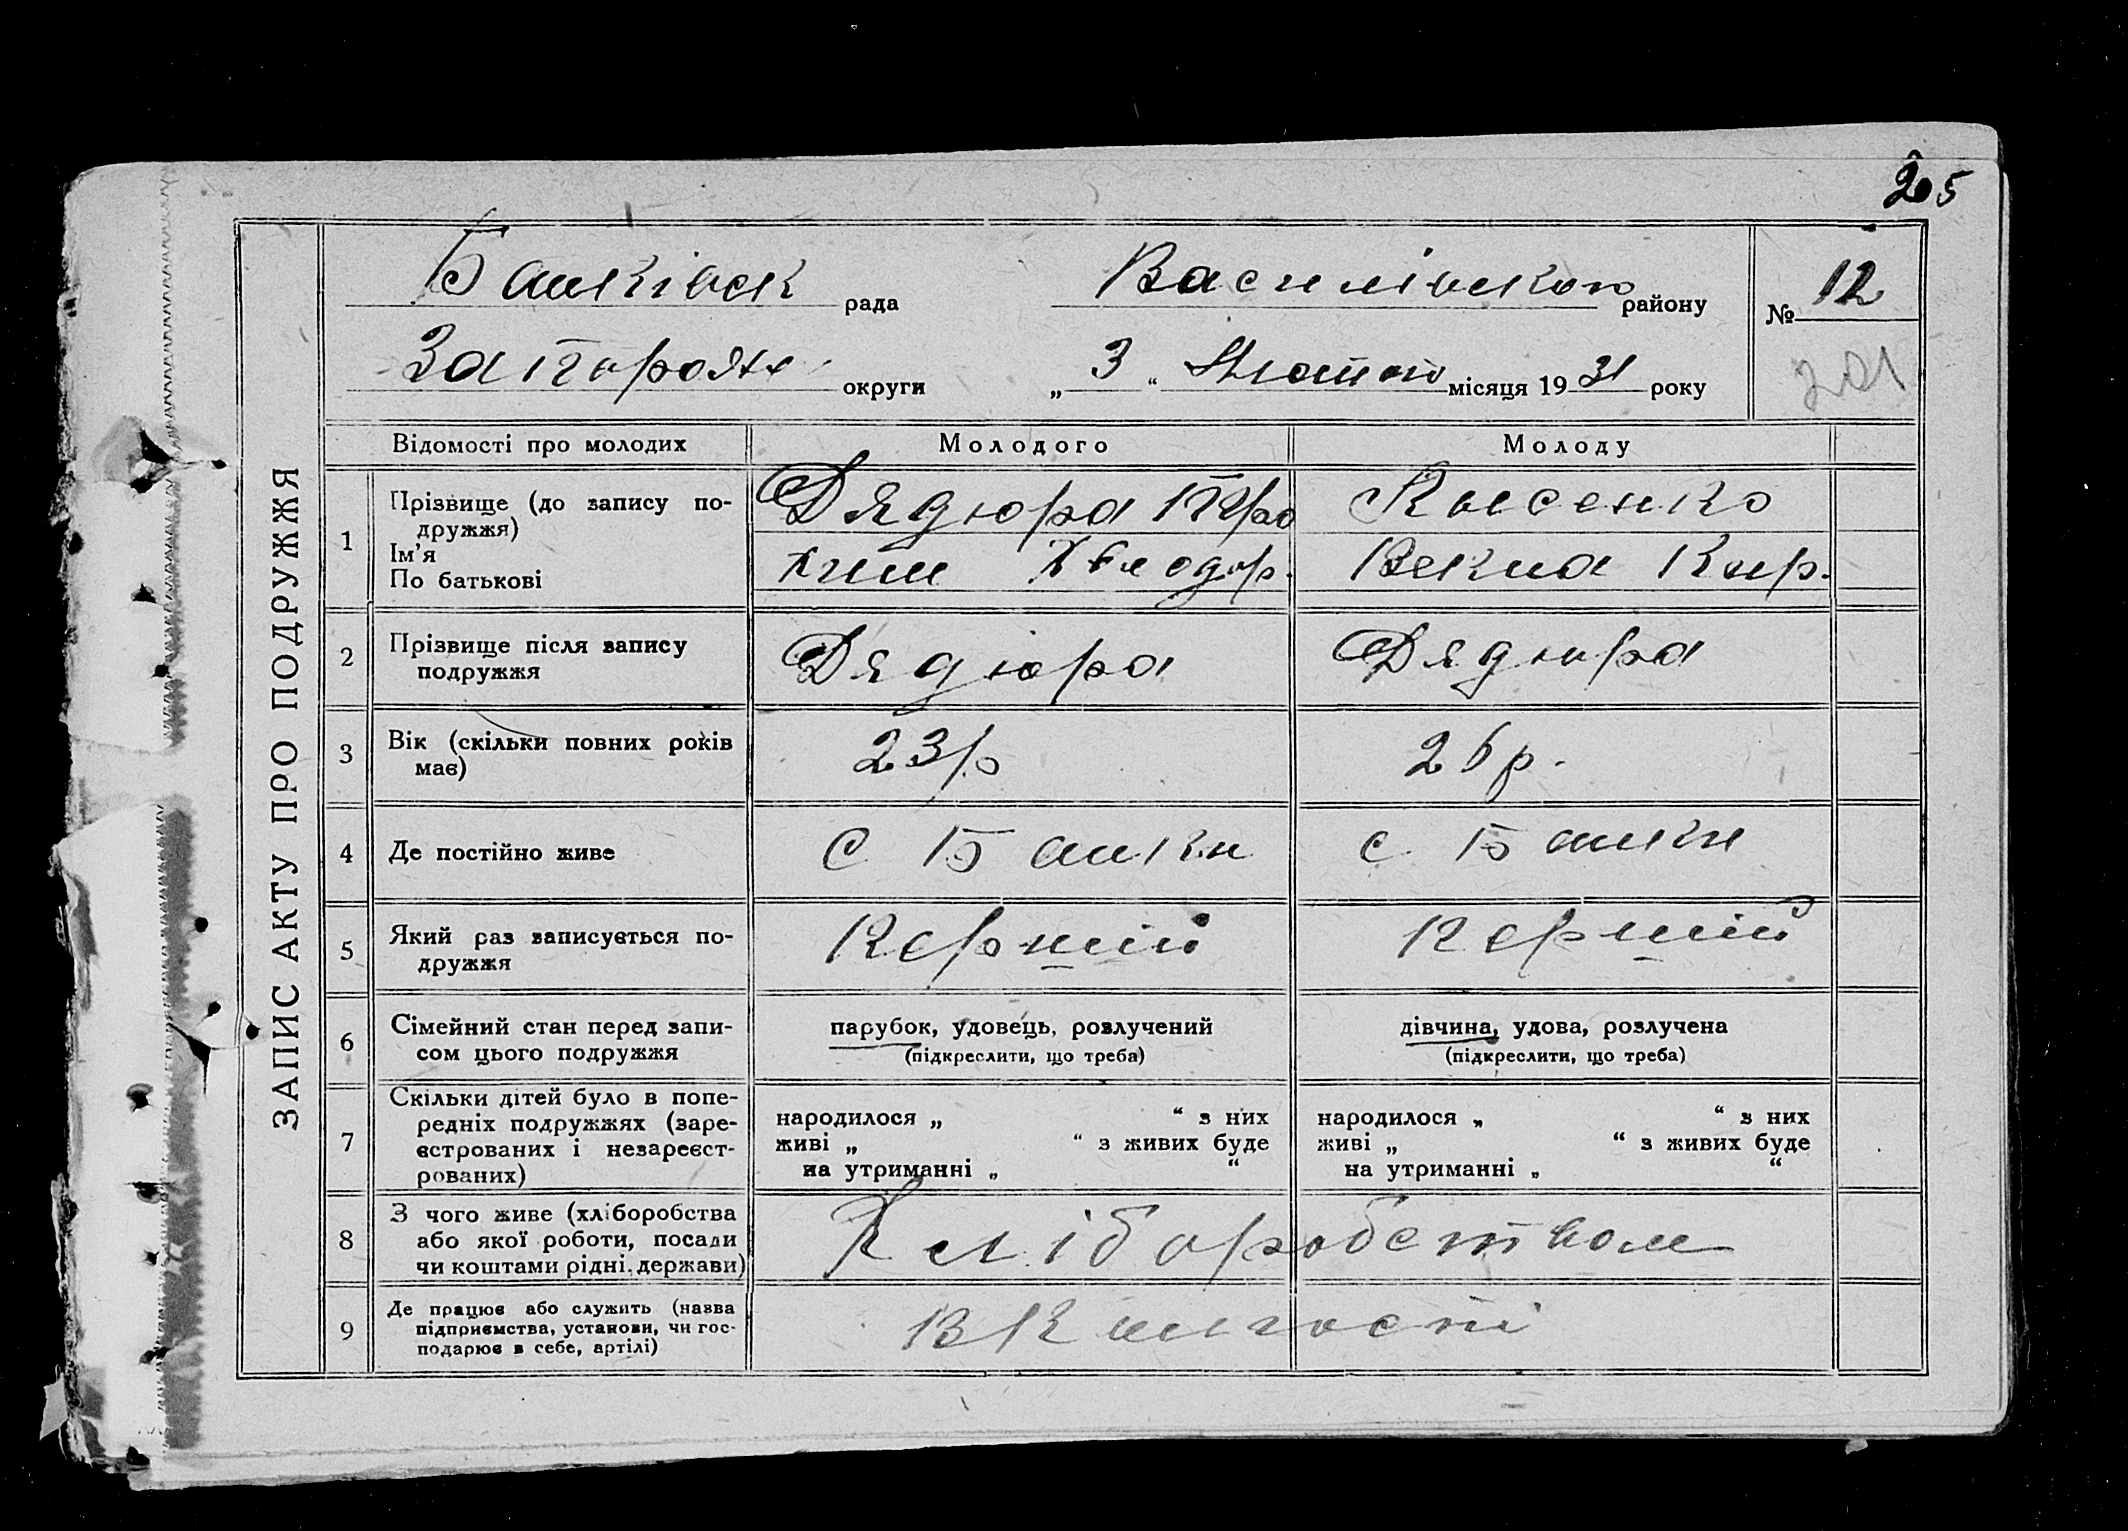 205
ЗАПИС АКТУ ПРО ПОДРУЖЖЯ
Башківск рада Василівського району № 12
Запорожж округи „ 3 “ Лютого місяця 19 31 року 201
Відомості про молодих Молодого Молоду
1 Прізвище (до запису по-
дружжя)
Ім’я
По батькові
Дядюра Тро
хим Хведор.
Лисенко
Векла Кир.
2 Прізвище після запису
подружжя
Дядюра Дядюра
3 Вік (скільки повних років
має)
23р 26р.
4 Де постійно живе с Башки с. Башки
5 Який раз записується по-
дружжя
Перший Перший
6 Сімейний стан перед запи-
сом цього подружжя
парубок, удовець, розлучений
(підкреслити, що треба)
дівчина, удова, розлучена
(підкреслити, що треба)
7 Скільки дітей було в попе-
редніх подружжях (заре-
єстрованих і незареєст-
рованих)
народилося „ “ з них
живі „ “ з живих буде
на утриманні „ “
народилося „ “ з них
живі „ “ з живих буде
на утриманні „ “
8 З чого живе (хліборобства
або якої роботи, посади
чи коштами рідні, держави)
Хліборобством
9 Де працює або служить (назва
підприємства, установи, чи гос-
подарює в себе, артілі)